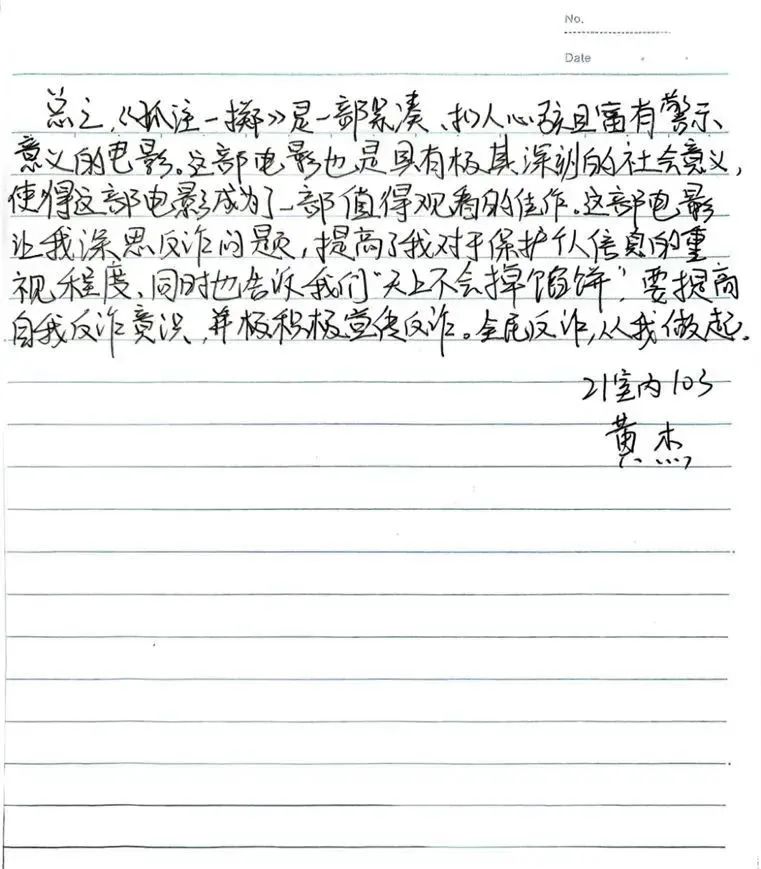 No.
Date
总之,《孤注一掷》是一部紧凑、扣人心弦且富有警示
意义的电影。这部电影也是具有极其深刻的社会意义,
使得这部电影成为了一部值得观看的佳作。这部电影
让我深思反诈问题,提高了我对于保护个人信息的重
视程度、同时也告诉我们“天上不会掉馅饼”,要提高
自我反诈意识,并极积极宣传反诈。全民反诈,从我做起.
21室内103
黄杰